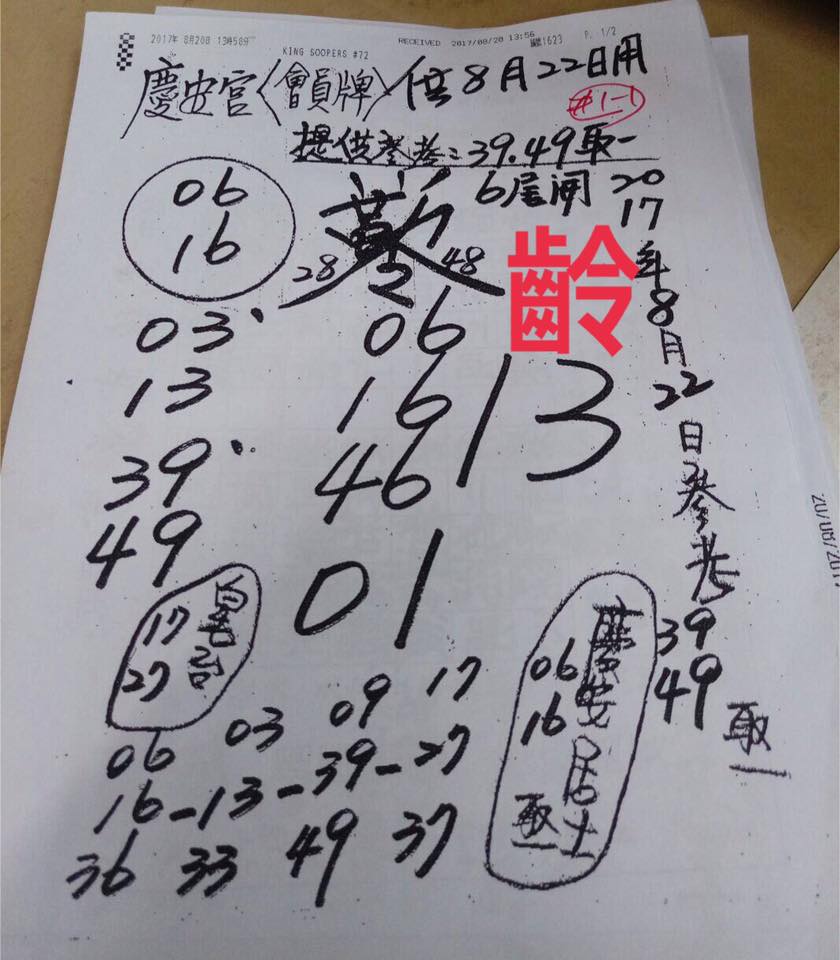 2017年 8月20日 13時58分 KING SOOPERS #72 RECEIVED 2017/08/20 13:56 1623 P. 1/2
慶安宮〈會員牌〉供8月22日用
#1-1
提供參考:39.49取一
6尾開
06
16
28 48
齡
2017年8月22日參考
39
49
取一
03
13
39
49
06
16
46
13
01
17
27
06 03 09 17
16-13-39-27
36 33 49 37
慶安居士
06
16
取一